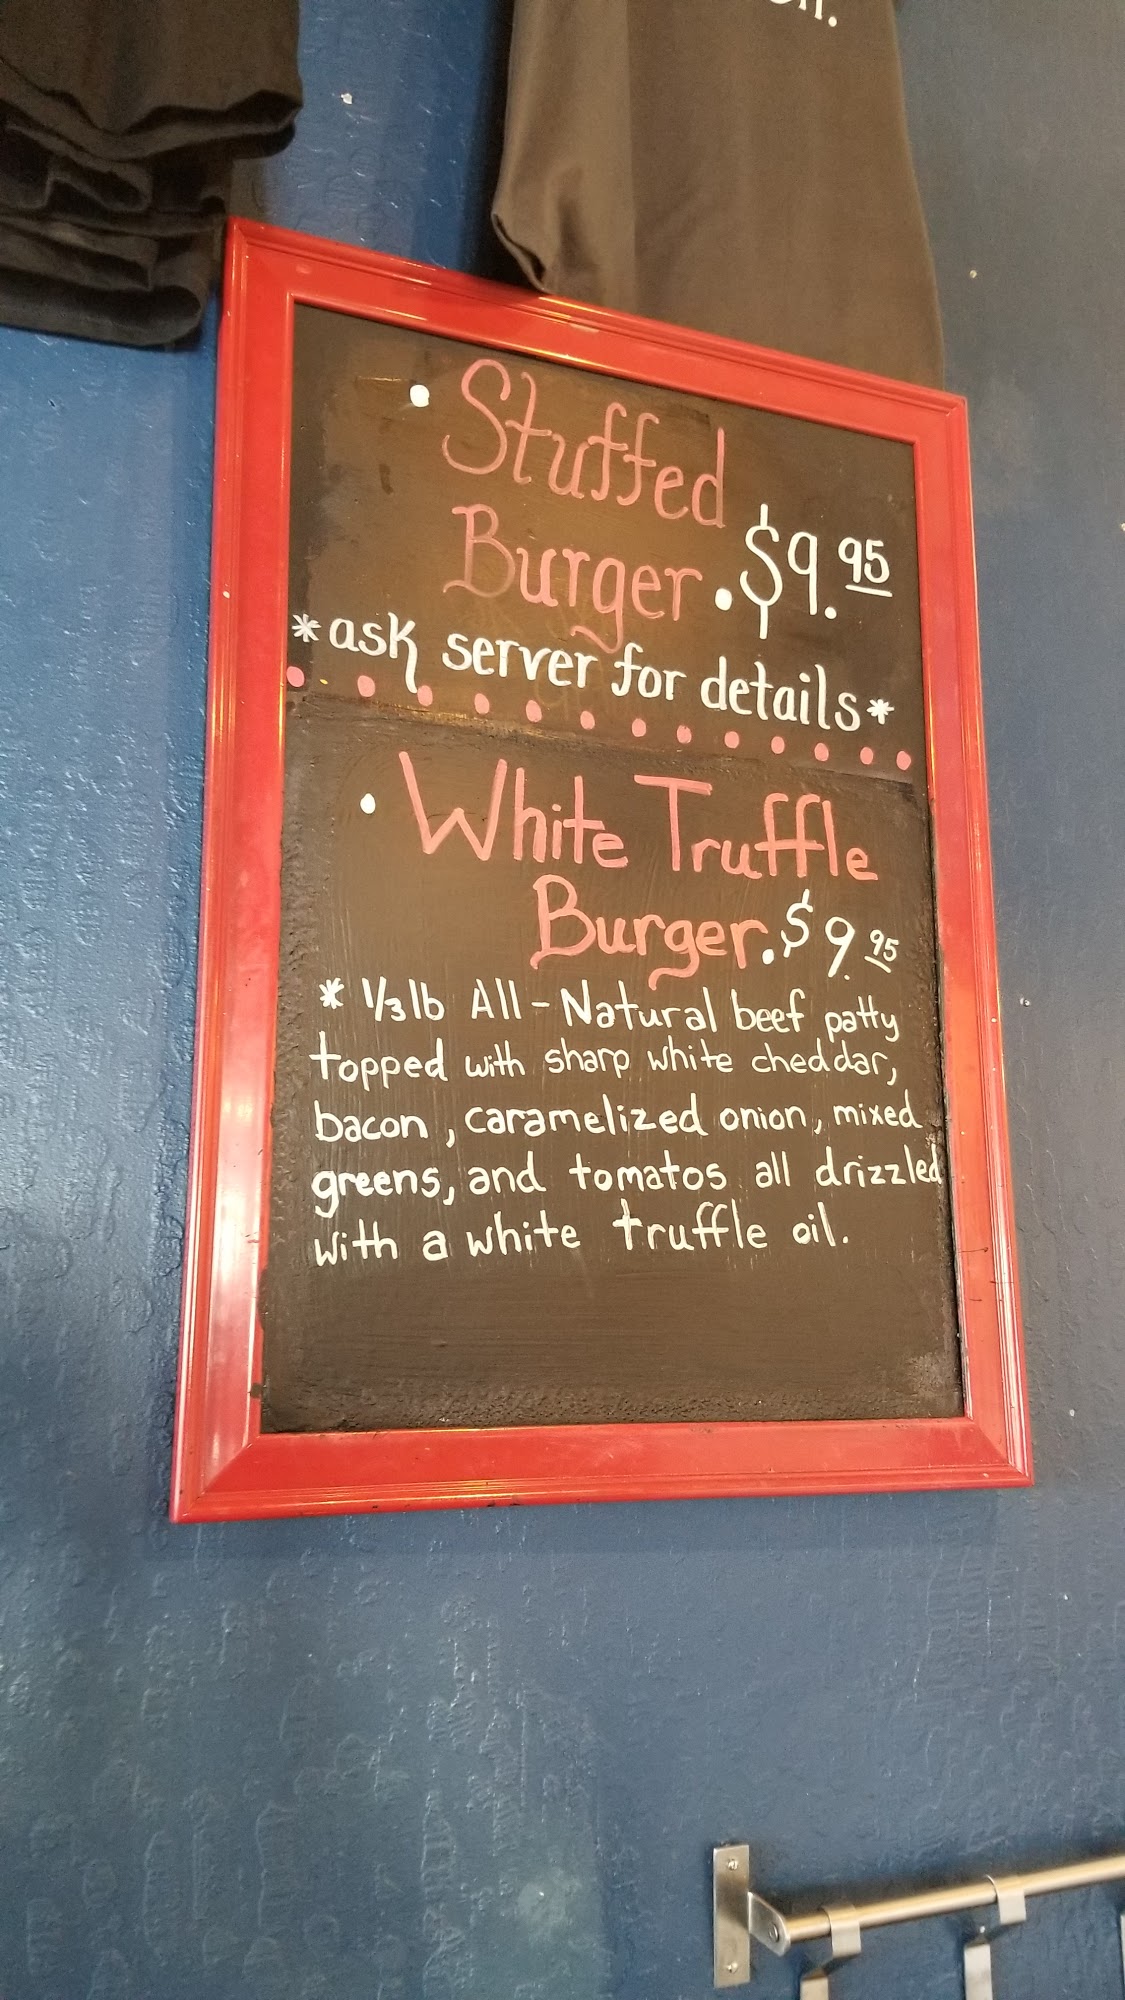 • Stuffed
Burger • $9.95
*ask server for details*
• White Truffle
Burger • $9.95
* 1/3 lb All-Natural beef patty
topped with sharp white cheddar,
bacon, caramelized onion, mixed
greens, and tomatos all drizzled
with a white truffle oil.